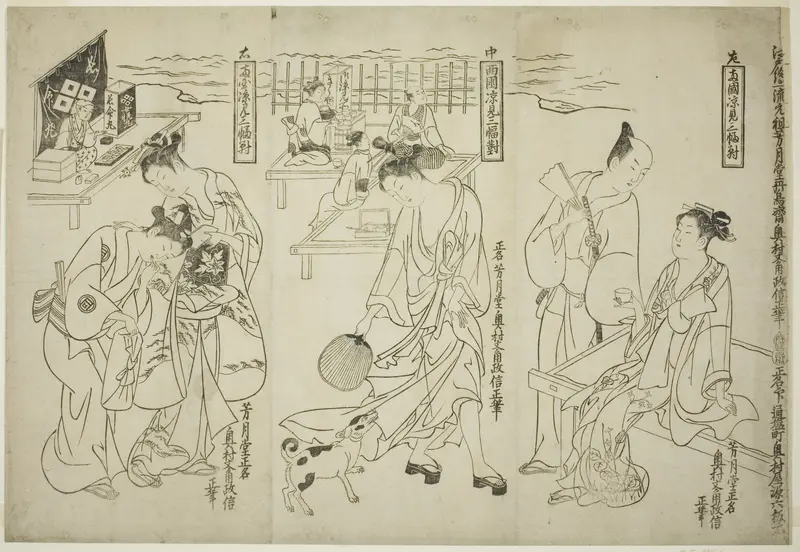 流元祖芳月堂丹鳥齋奥村文角政信正筆
正名下 通塩町奥村屋源六板元
左
両國涼見三幅對
芳月堂正名
奥村文角政信
正筆
中
両國涼見三幅對
正名 芳月堂奥村文角政信正筆
右
両國涼見三幅對
芳月堂正名
奥村文角政信
正筆